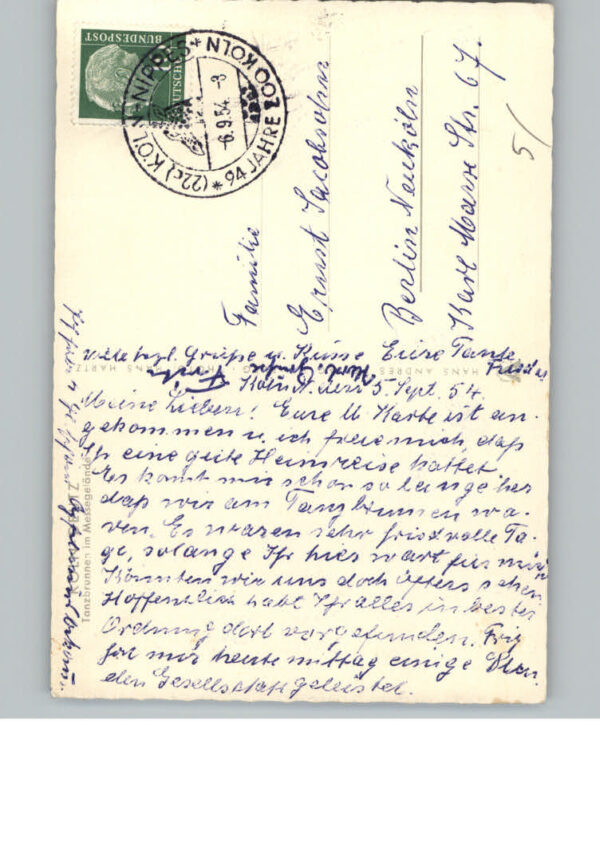 DEUTSCHE
BUNDESPOST
(22c) KÖLN-NIPPES * 94 JAHRE ZOO KÖLN *
-6.9.54 -8
5/
Familie
Ernst Jacobsohn
Berlin Neukölln
Karl Marx Str. 67.
viele herzl. Grüße u. Küsse Eure Tante
Frieda
HANS ANDRES
HANS HARTZ
Köln, den 5. Sept. 54.
Meine Lieben! Eure lb. Karte ist an-
gekommen u. ich freie mich, daß
Ihr eine gute Heimreise hattet.
Es komt mir schon so lange her
daß wir am Tanzbrunnen wa-
ren. Es waren sehr freidvolle Ta-
ge, solange Ihr hier wart für mich
Könnten wir uns doch öfters sehen
Hoffentlich habt Ihr alles in bester
Ordnung dort vorgefunden. Fritz
hat mir heute mittag einige Stun-
den Gesellschaft geleistet.
Tanzbrunnen im Messegelände